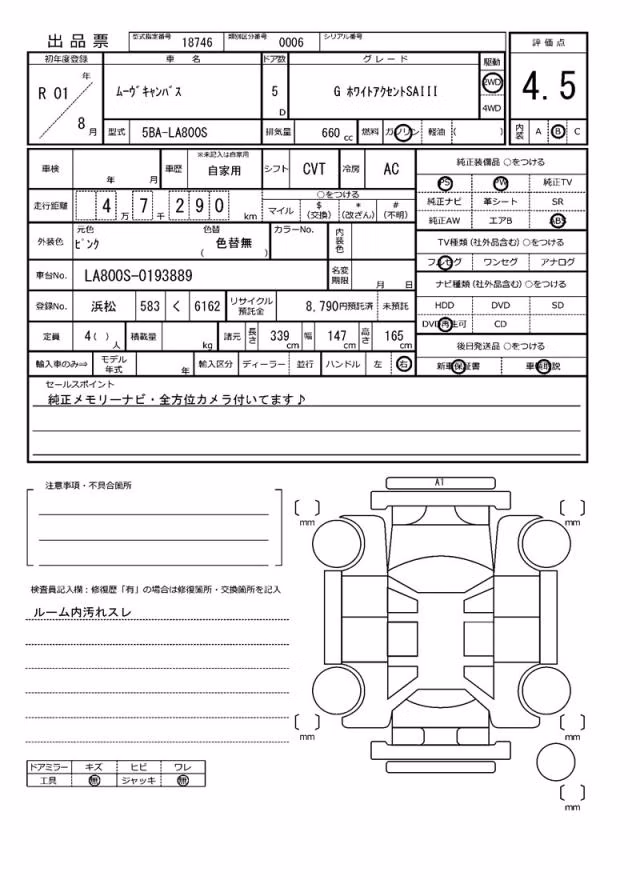 出品票 型式指定番号 18746 類別区分番号 0006 シリアル番号
評価点
初年度登録 車名 ドア数 グレード 駆動
R 01 年 8 月 ﾑｰｳﾞｷｬﾝﾊﾞｽ 5 D G ﾎﾜｲﾄｱｸｾﾝﾄSAIII 2WD 4WD
4.5
型式 5BA-LA800S 排気量 660 cc 燃料 ガソリン 軽油 ( )
内装 A B C
車検 年 月 車歴 ※未記入は自家用 自家用 シフト CVT 冷房 AC
走行距離 4 万 7 千 2 9 0 km ○をつける
マイル $(交換) *(改ざん) #(不明)
外装色 元色 ﾋﾟﾝｸ 色替 ( 色替無 ) カラーNo. 内装色
車台No. LA800S-0193889 名変期限 月 日
登録No. 浜松 583 く 6162 リサイクル預託金 8,790円預託済 未預託
定員 4( ) 人 積載量 kg 諸元 長さ 339 cm 幅 147 cm 高さ 165 cm
輸入車のみ⇒ モデル年式 年 輸入区分 ディーラー 並行 ハンドル 左 右
純正装備品 ○をつける
PS PW 純正TV
純正ナビ 革シート SR
純正AW エアB ABS
TV種類 (社外品含む) ○をつける
フルセグ ワンセグ アナログ
ナビ種類 (社外品含む) ○をつける
HDD DVD SD
DVD再生可 CD
後日発送品 ○をつける
新車保証書 車輌取説
セールスポイント
純正メモリーナビ・全方位カメラ付いてます♪
注意事項・不具合箇所
検査員記入欄：修復歴「有」の場合は修復箇所・交換箇所を記入
ルーム内汚れスレ
ドアミラー キズ ヒビ ワレ
工具 無 ジャッキ 無
A1
mm mm
mm mm
mm